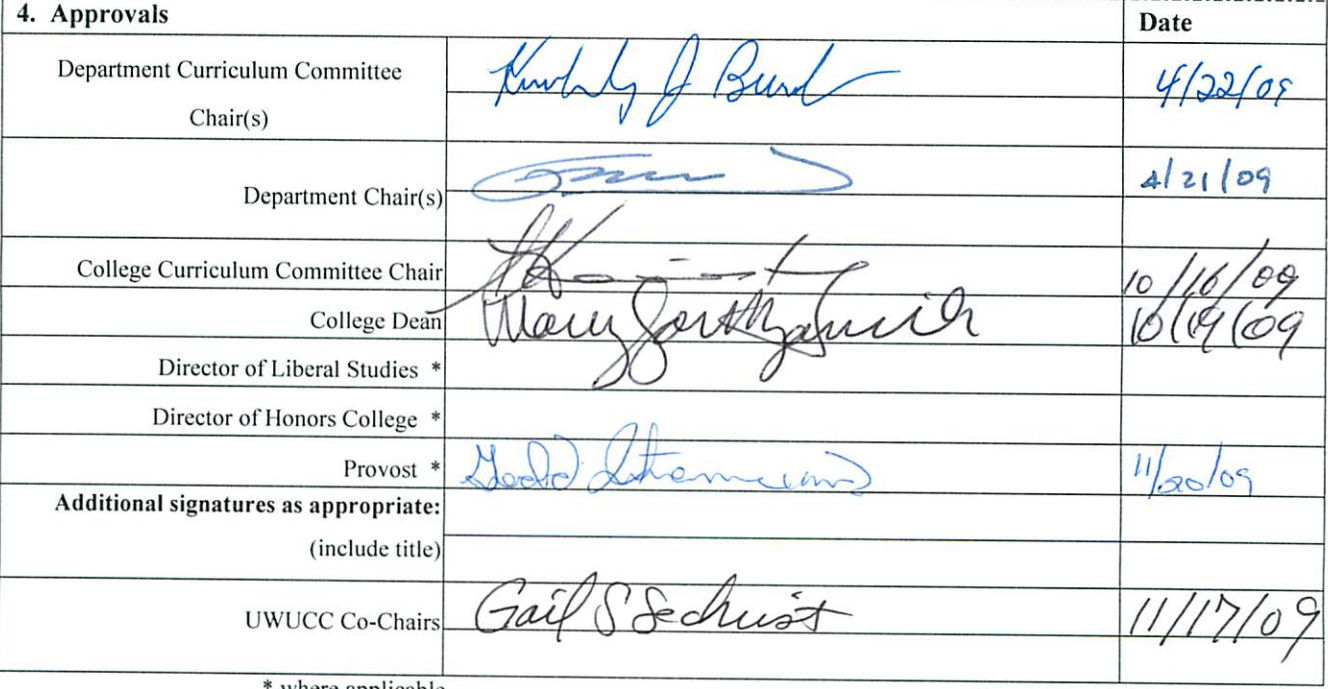 4. Approvals Date
Department Curriculum Committee Chair(s) Kimberly J Burd 4/22/09
Department Chair(s) 4/21/09
College Curriculum Committee Chair 10/16/09
College Dean Mary 10/19/09
Director of Liberal Studies *
Director of Honors College *
Provost * 11/20/09
Additional signatures as appropriate:
(include title)
UWUCC Co-Chairs Gail S Sechrist 11/17/09
* where applicable